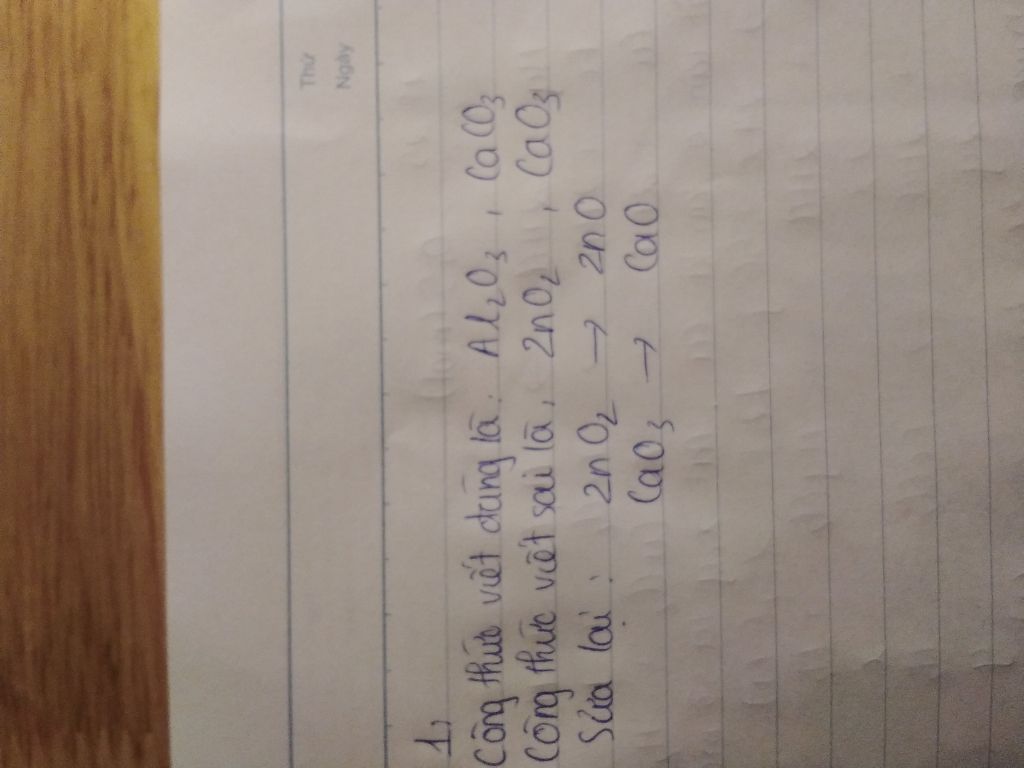 Thứ
Ngày
1,
Công thức viết đúng là: Al2O3, CaCO3
Công thức viết sai là, ZnO2, CaO3
Sửa lại: ZnO2 → ZnO
CaO3 → CaO